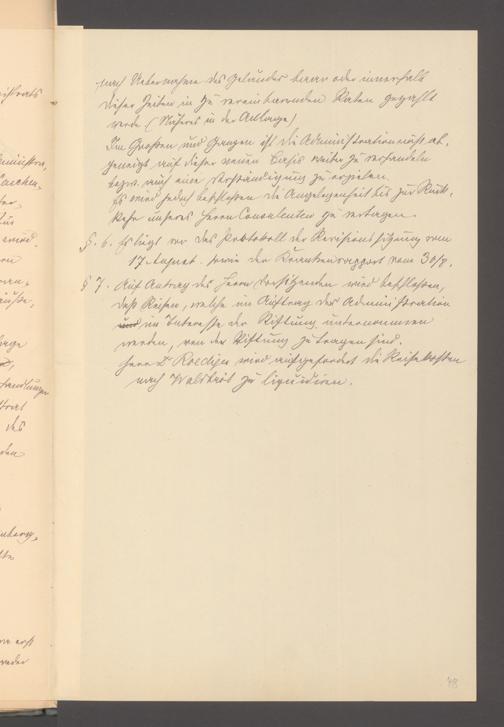 nach Uebernahme des Geländes baar oder innerhalb
dieser Zeiten in zu vereinbarenden Raten gezahlt
werde (Näheres in der Anlage)
Im Großen und Ganzen ist die Administration nicht ab-
geneigt auf dieser neuen Basis weiter zu verhandeln
bezw. auch eine Verständigung zu erzielen.
Es wird jedoch beschlossen die Angelegenheit bis zur Rück-
kehr unseres Herrn Consulenten zu vertagen.
§. 6. Es liegt vor das Protokoll der Revisionssitzung vom
17. August sowie der Krankenrapport vom 30/8.
§ 7. Auf Antrag des Herrn Vorsitzenden wird beschlossen,
daß Reisen, welche im Auftrag der Administration
und im Interesse der Stiftung unternommen
werden, von der Stiftung zu tragen sind.
Herr Dr. Roediger wird aufgefordert die Reisekosten
nach zu liquidiren.
48